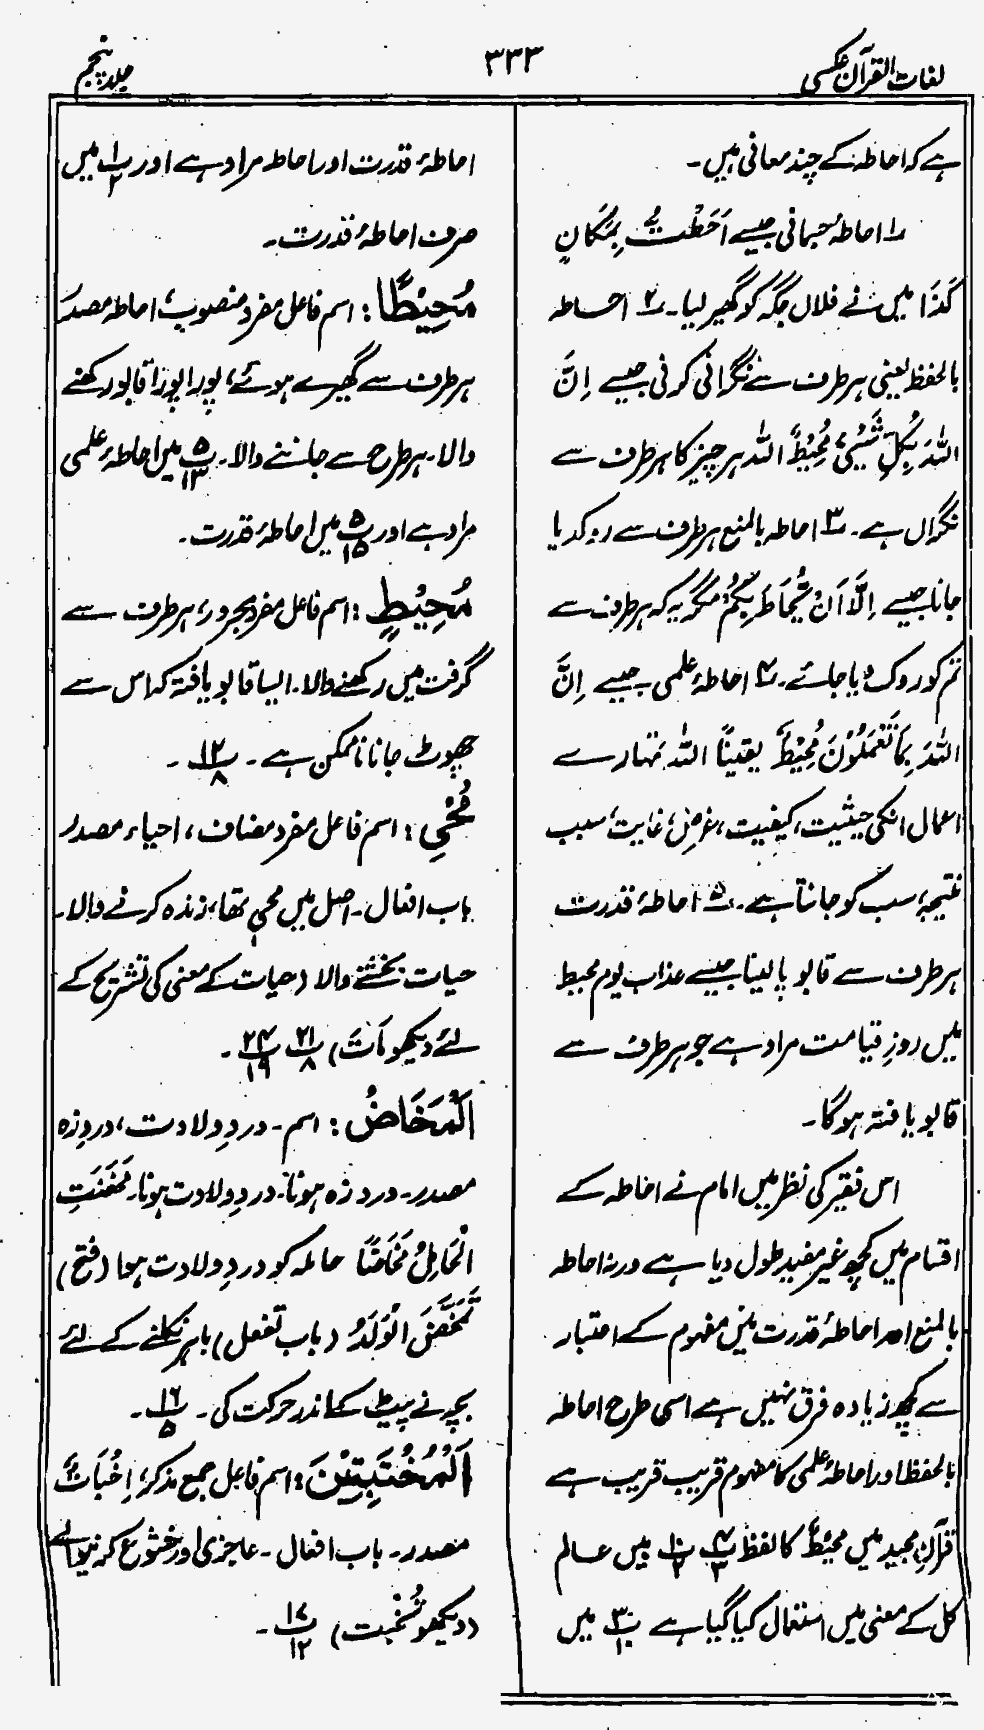 لغات القرآن عکسی
۳۳۳
جلد پنجم
ہے کہ احاطہ کے چند معانی ہیں۔
۱ احاطۂ جسمانی جیسے اَحَطْتُ بِمَکَانٍ
کَذَا میں نے فلاں جگہ کو گھیر لیا۔ ۲ احاطہ
بالحفظ یعنی ہر طرف سے نگرانی کرنی جیسے اِنَّ
اللہَ بِکُلِّ شَیْئٍ مُحِیْطٌ اللہ ہر چیز کا ہر طرف سے
نگراں ہے۔ ۳ احاطہ بالمنع ہر طرف سے روک دیا
جانا جیسے اِلَّا اَنْ یُّحَاطَ بِکُمْ مگر یہ کہ ہر طرف سے
تم کو روک دیا جائے۔ ۴ احاطۂ علمی جیسے اِنَّ
اللہَ بِمَا تَعْمَلُوْنَ مُحِیْطٌ یقیناً اللہ تمہارے
اعمال انکی حیثیت، کیفیت، غرض، غایت، سبب
نتیجہ، سب کو جانتا ہے۔ ۵ احاطۂ قدرت
ہر طرف سے قابو پا لینا جیسے عذاب یوم محیط
میں روزِ قیامت مراد ہے جو ہر طرف سے
قابو یافتہ ہوگا۔
اس فقیر کی نظر میں امام نے احاطہ کے
اقسام میں کچھ غیر مفید طول دیا ہے ورنہ احاطہ
بالمنع اور احاطۂ قدرت میں مفہوم کے اعتبار
سے کچھ زیادہ فرق نہیں ہے اسی طرح احاطہ
بالحفظ اور احاطۂ علمی کا مفہوم قریب قریب ہے
قرآن مجید میں مُحِیْطٌ کا لفظ پ۴/۳ پ۱۰/۲ میں عالم
کل کے معنی میں استعمال کیا گیا ہے پ۳۰/۱۰ میں
احاطۂ قدرت اور احاطہ مراد ہے اور پ۱/۲ میں
صرف احاطۂ قدرت۔
مُحِیْطًا: اسم فاعل مفرد منصوب، احاطہ مصدر
ہر طرف سے گھیرے ہوئے، پورا پورا قابو رکھنے
والا۔ ہر طرح سے جاننے والا۔ پ۵/۱۳ میں احاطۂ علمی
مراد ہے اور پ۵/۱۵ میں احاطۂ قدرت۔
مُحِیْطٍ: اسم فاعل مفرد مجرور، ہر طرف سے
گرفت میں رکھنے والا۔ ایسا قابو یافتہ کہ اس سے
چھوٹ جانا ناممکن ہے۔ پ۱۲/۸۔
مُحْیِ: اسم فاعل مفرد مضاف، احیاء مصدر
باب افعال۔ اصل میں محیی تھا، زندہ کرنے والا۔
حیات بخشنے والا (حیات کے معنی کی تشریح کے
لئے دیکھو مَاتَ) پ۲۱/۸ پ۲۴/۱۹۔
اَلْمَخَاضُ: اسم۔ دردِ ولادت، دردِ زہ
مصدر۔ درد زہ ہونا۔ دردِ ولادت ہونا۔ مَخَضَتِ
الْحَامِلُ مَخَاضًا حاملہ کو دردِ ولادت ہوا (فتح)
تَمَخَّضَ الْوَلَدُ (باب تفعل) باہر نکلنے کے لئے
بچہ نے پیٹ کے اندر حرکت کی۔ پ۱۶/۵۔
اَلْمُخْبِتِیْنَ: اسم فاعل جمع مذکر، اِخْبَاتٌ
مصدر۔ باب افعال۔ عاجزی اور خشوع کرنیوالے
(دیکھو تُخْبِتَ) پ۱۷/۱۲۔